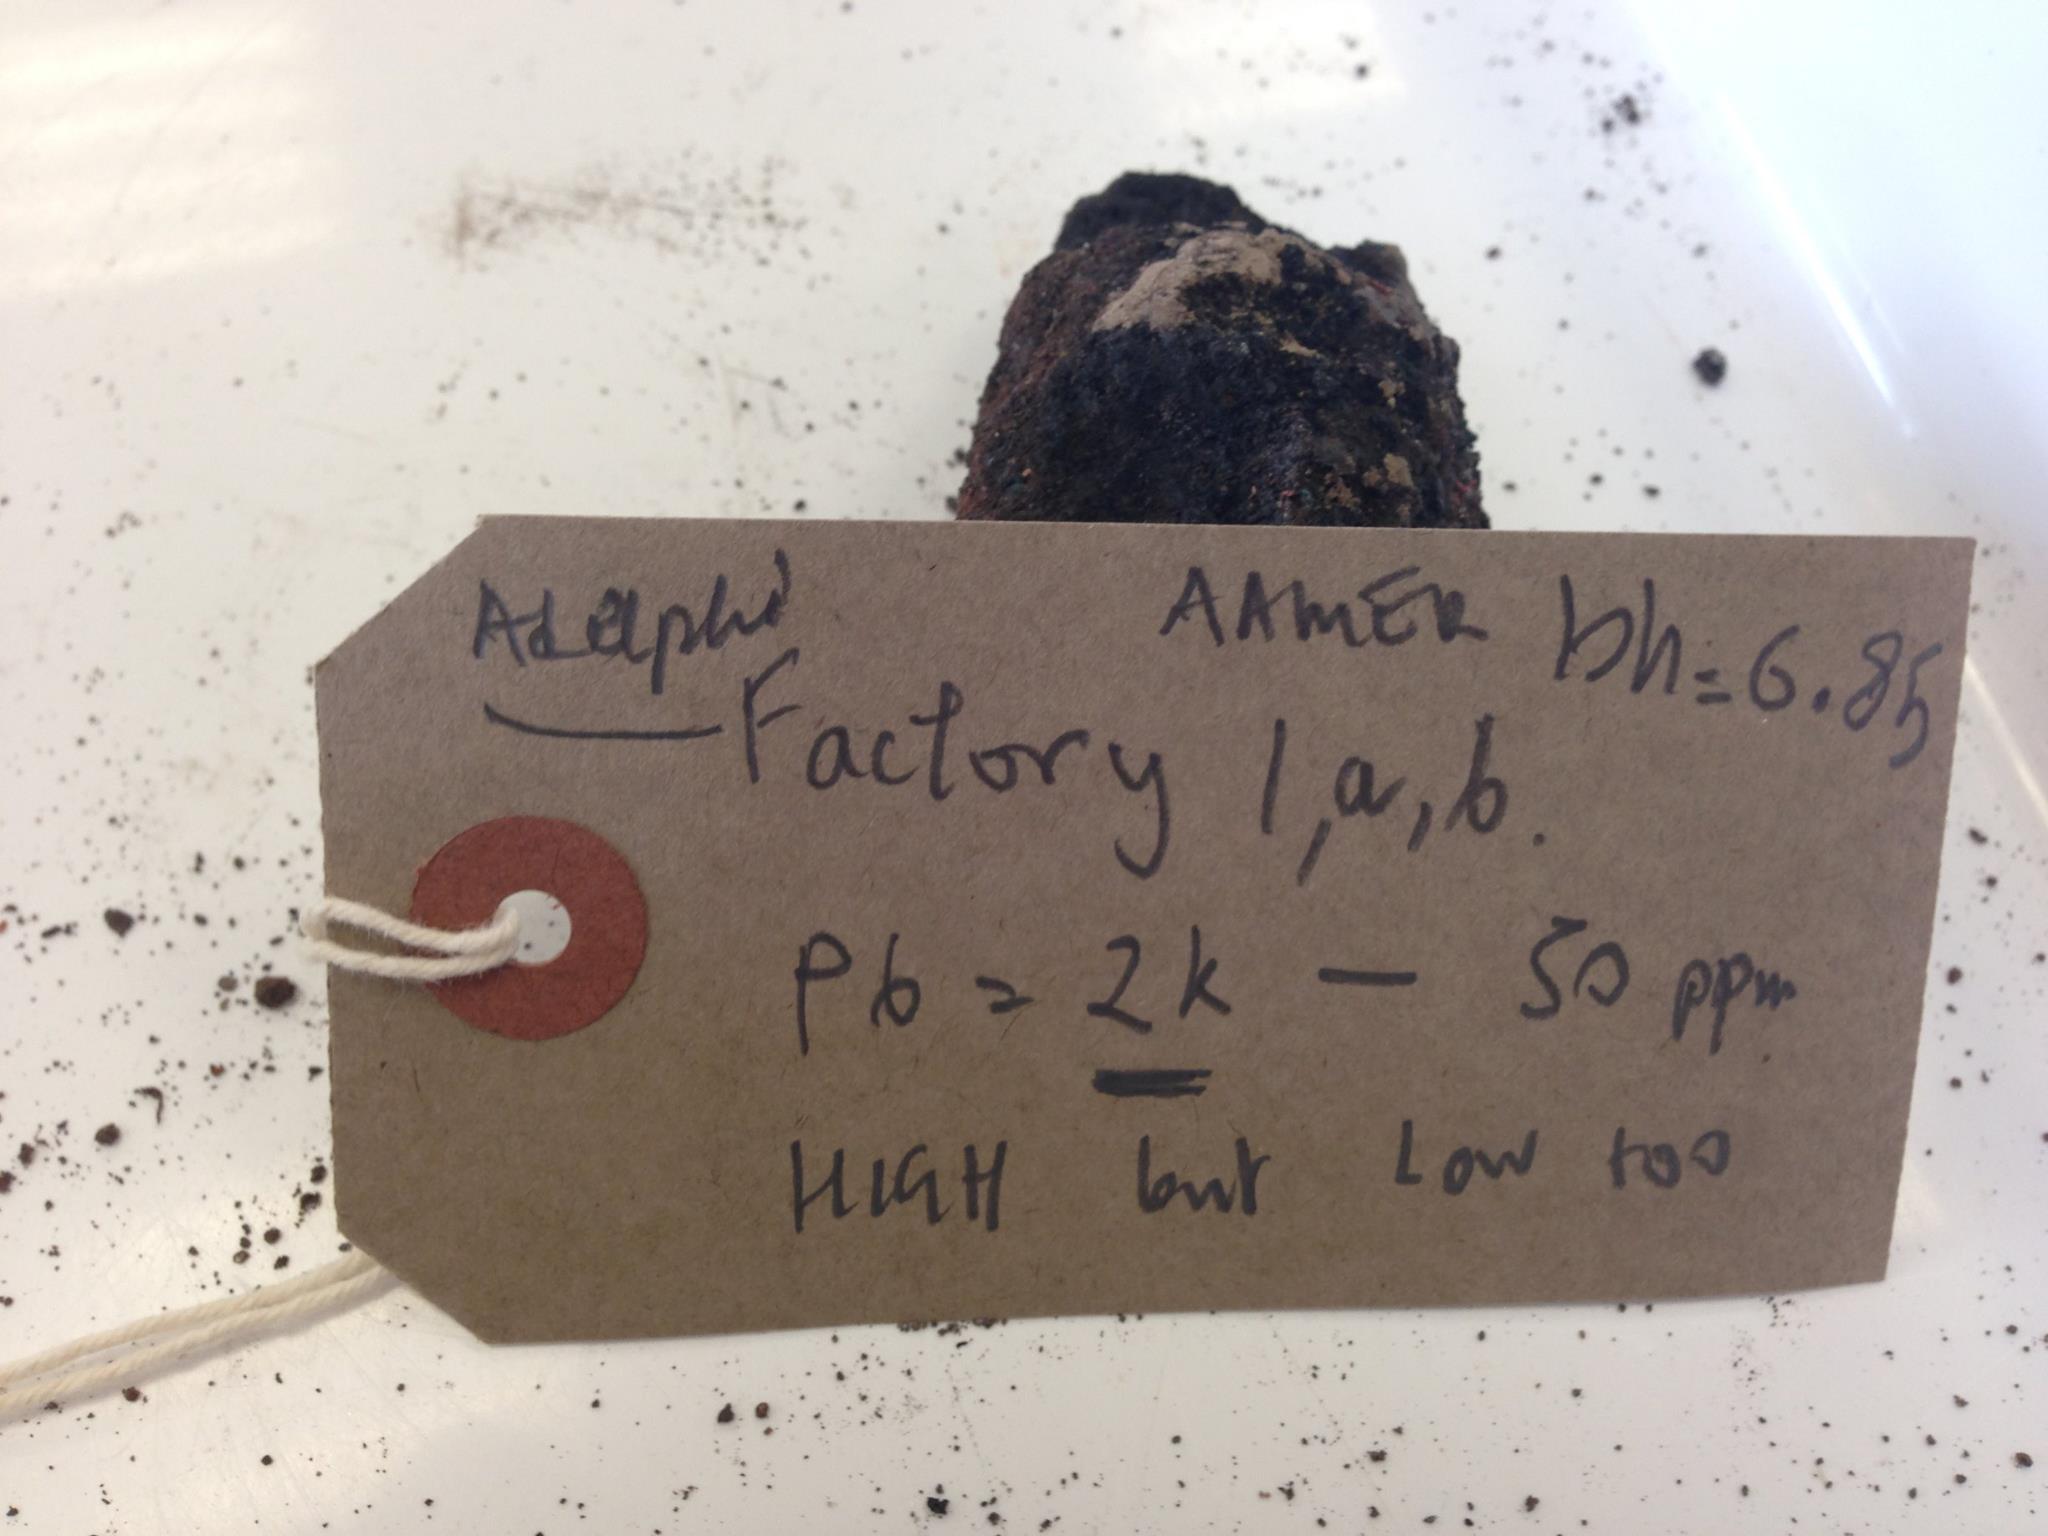 Adelphi AAMER bh=6.85
Factory 1,a,b.
Pb = 2k - 50 ppm
HIGH but Low too